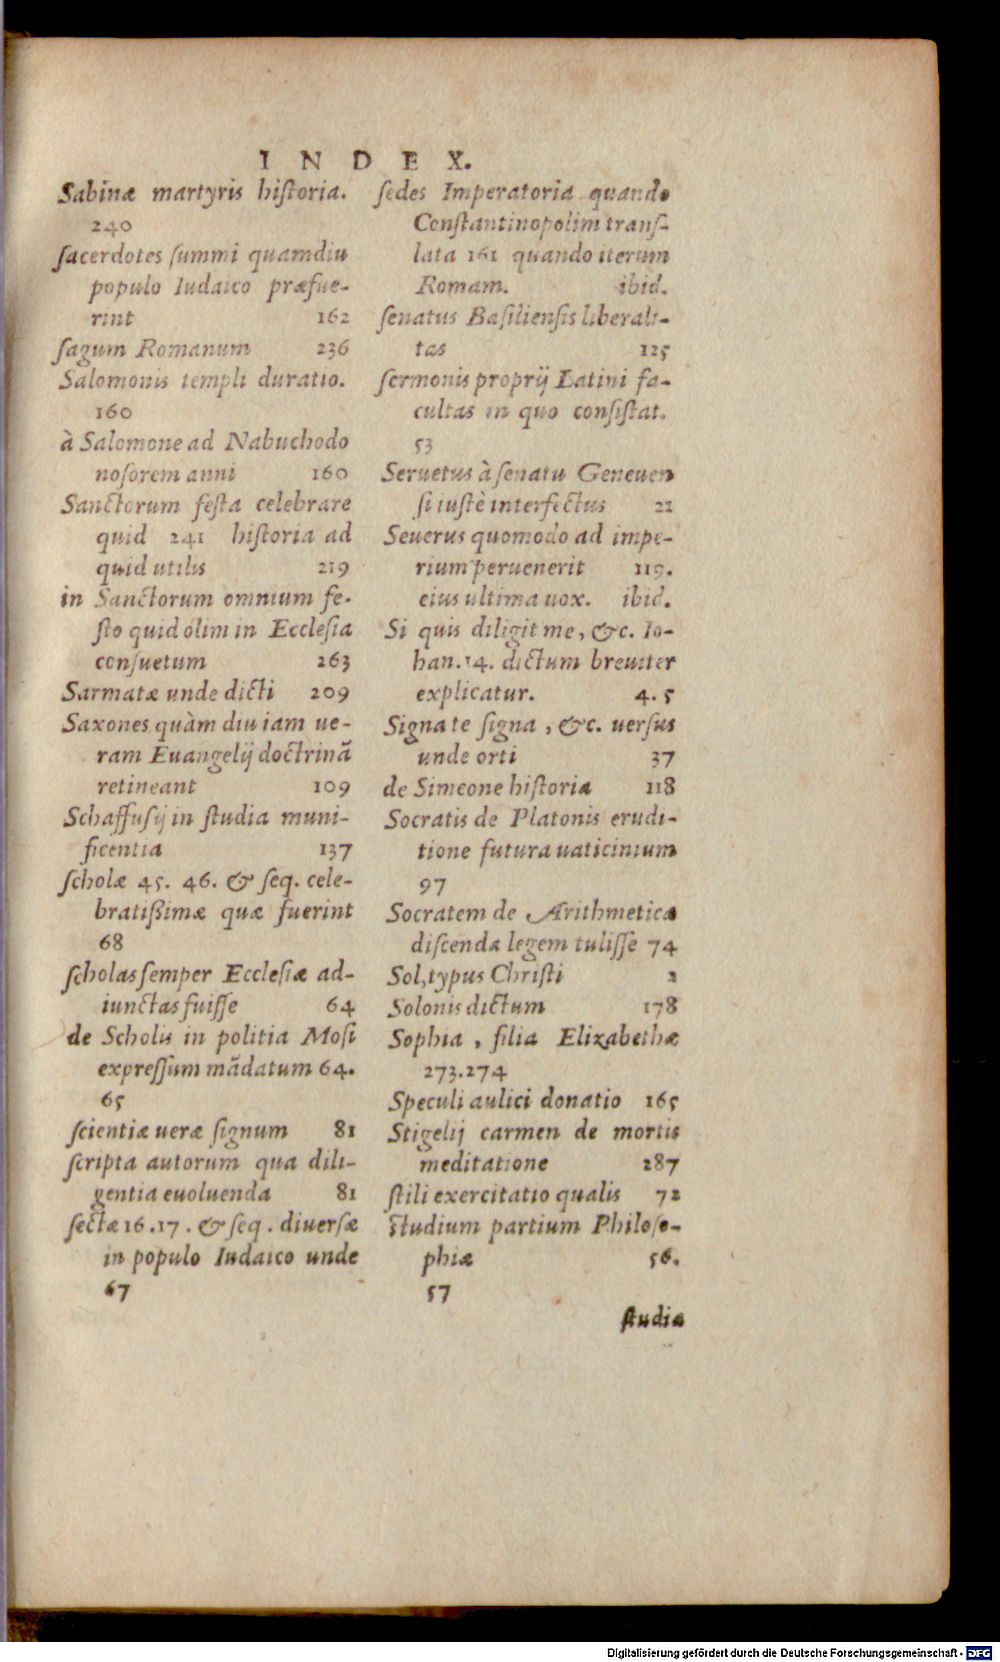 INDEX.
Sabinæ martyris hiſtoria.
240
ſacerdotes ſummi quamdiu
populo Iudaico præfue-
rint 162
ſagum Romanum 236
Salomonis templi duratio.
160
à Salomone ad Nabuchodo
noſorem anni 160
Sanctorum feſta celebrare
quid 241 hiſtoria ad
quid utilis 219
in Sanctorum omnium fe-
ſto quid olim in Eccleſia
conſuetum 263
Sarmatæ unde dicti 209
Saxones quàm diu iam ue-
ram Euangelij doctrinã
retineant 109
Schaffuſij in ſtudia muni-
ficentia 137
ſcholæ 45. 46. & ſeq. cele-
bratißimæ quæ fuerint
68
ſcholas ſemper Eccleſiæ ad-
iunctas fuiſſe 64
de Scholis in politia Moſi
expreſſum mãdatum 64.
65
ſcientiæ ueræ ſignum 81
ſcripta autorum qua dili-
gentia euoluenda 81
ſectæ 16.17. & ſeq. diuerſæ
in populo Iudaico unde
67
ſedes Imperatoria quando
Conſtantinopolim tranſ-
lata 161 quando iterum
Romam. ibid.
ſenatus Baſilienſis liberali-
tas 125
ſermonis proprij Latini fa-
cultas in quo conſiſtat.
53
Seruetus à ſenatu Geneuen
ſi iuſtè interfectus 21
Seuerus quomodo ad impe-
rium peruenerit 119.
eius ultima uox. ibid.
Si quis diligit me, &c. Io-
han.14. dictum breuiter
explicatur. 4.5
Signa te ſigna, &c. uerſus
unde orti 37
de Simeone hiſtoria 118
Socratis de Platonis erudi-
tione futura uaticinium
97
Socratem de Arithmetica
diſcenda legem tuliſſe 74
Sol, typus Chriſti 2
Solonis dictum 178
Sophia, filia Elizabethæ
273.274
Speculi aulici donatio 165
Stigelij carmen de mortis
meditatione 287
ſtili exercitatio qualis 72
Studium partium Philoſo-
phiæ 56.
57
ſtudia
Digitalisierung gefördert durch die Deutsche Forschungsgemeinschaft - DFG